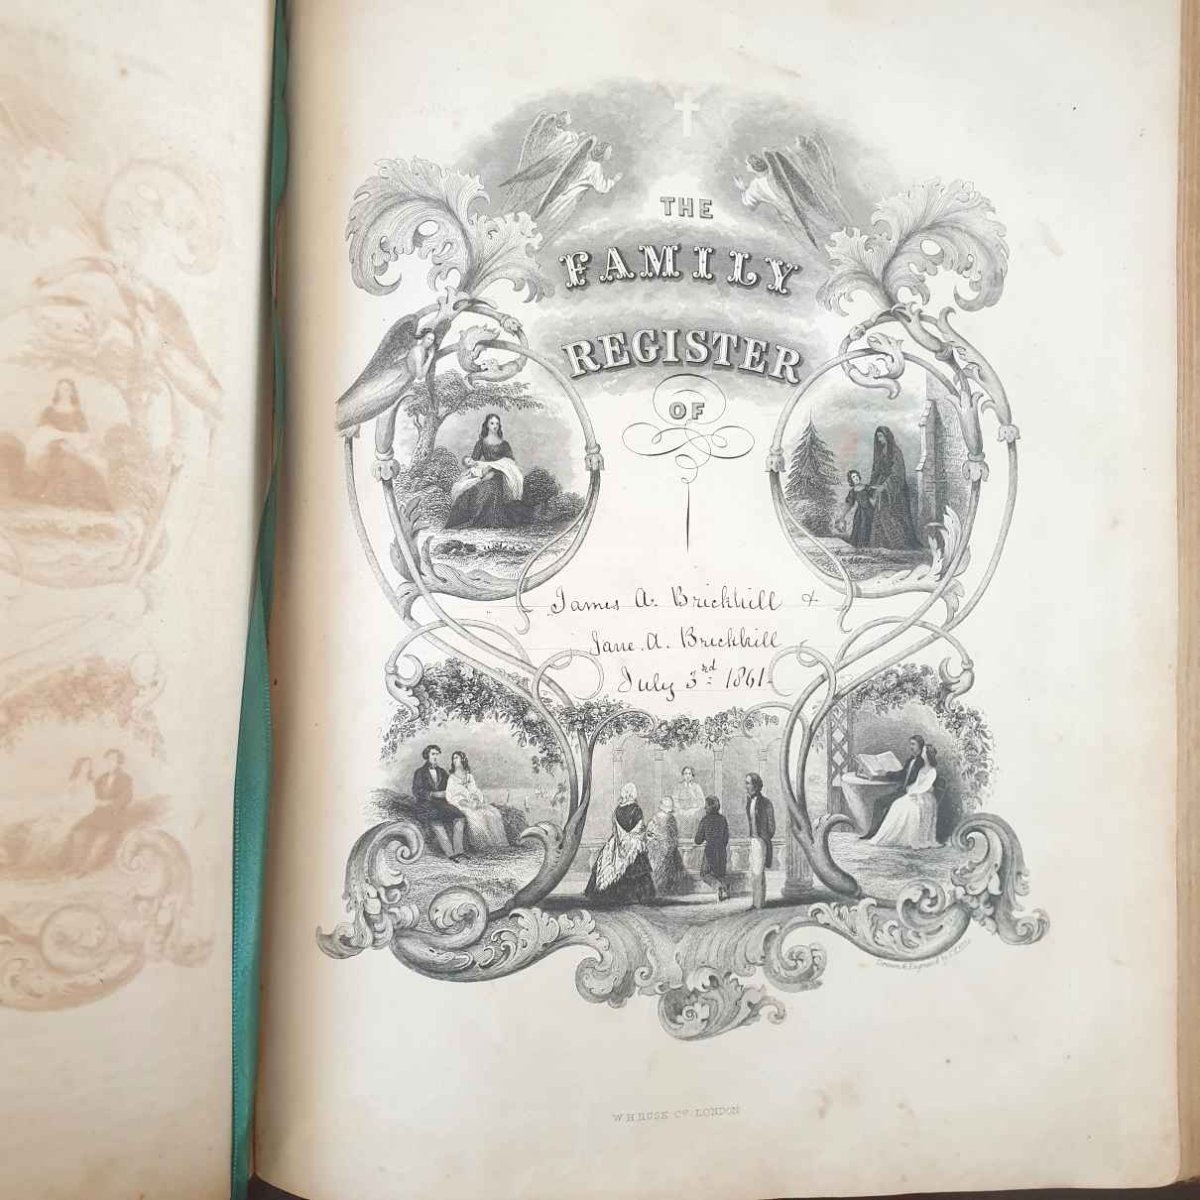 THE
FAMILY
REGISTER
OF
James A. Brickhill &
Jane. A. Brickhill
July 3rd 1861.
Drawn & Engraved by
W H RUSK Co. LONDON